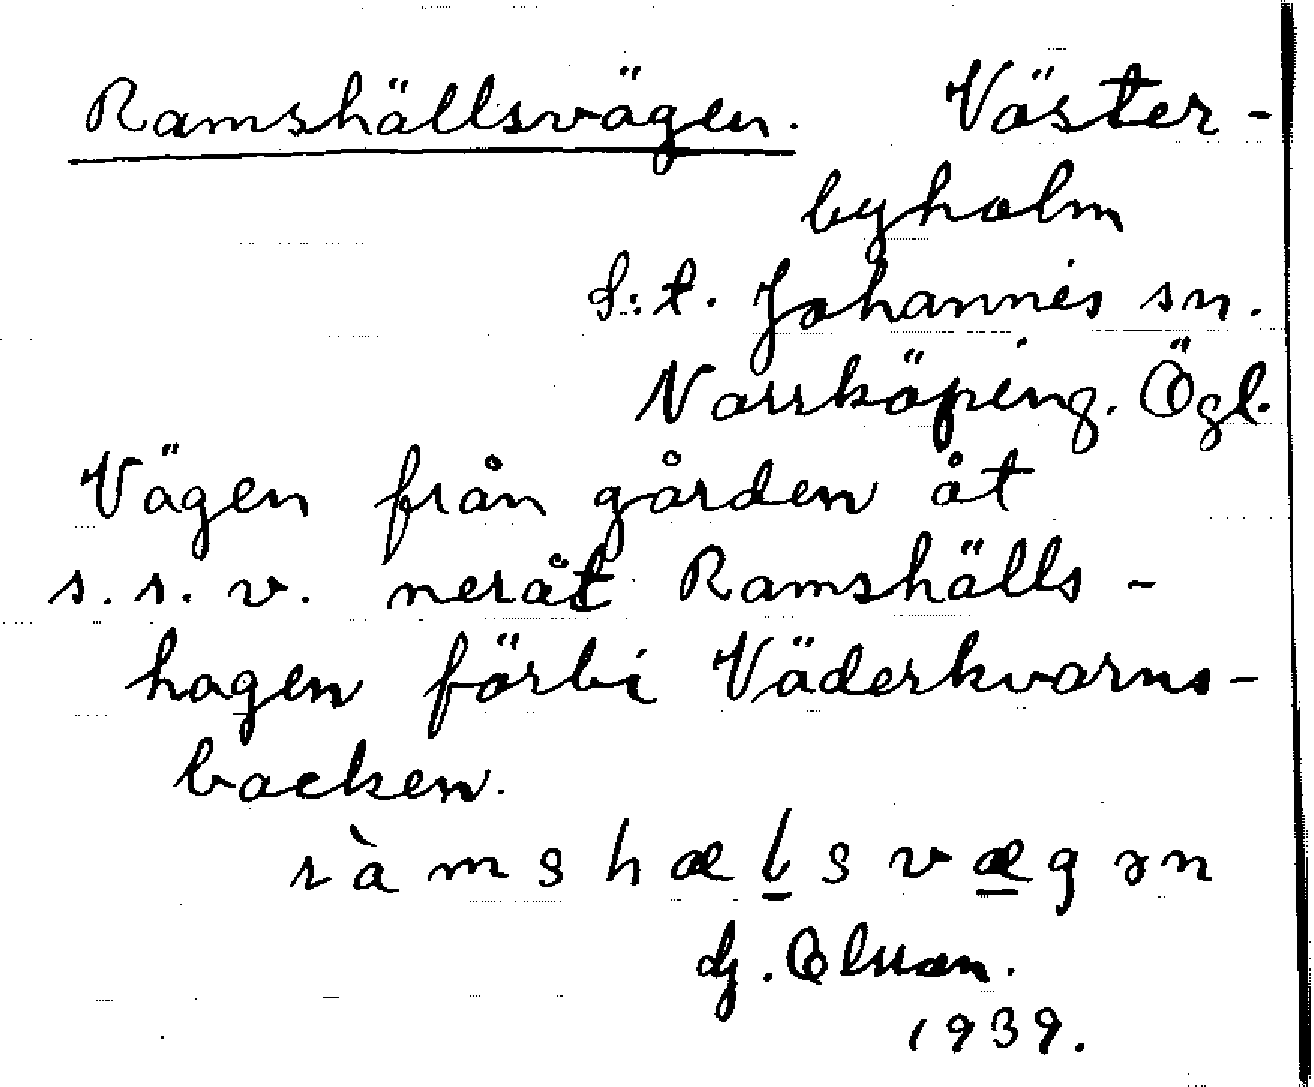 Ramshällsvägen. Väster-
byholm
S:t. Johannes sn.
Norrköping. Ögl.
Vägen från gården åt
s.s.v. neråt Ramshälls-
hagen förbi Väderkvarns-
backen.
ràmshælsvægən
1939.